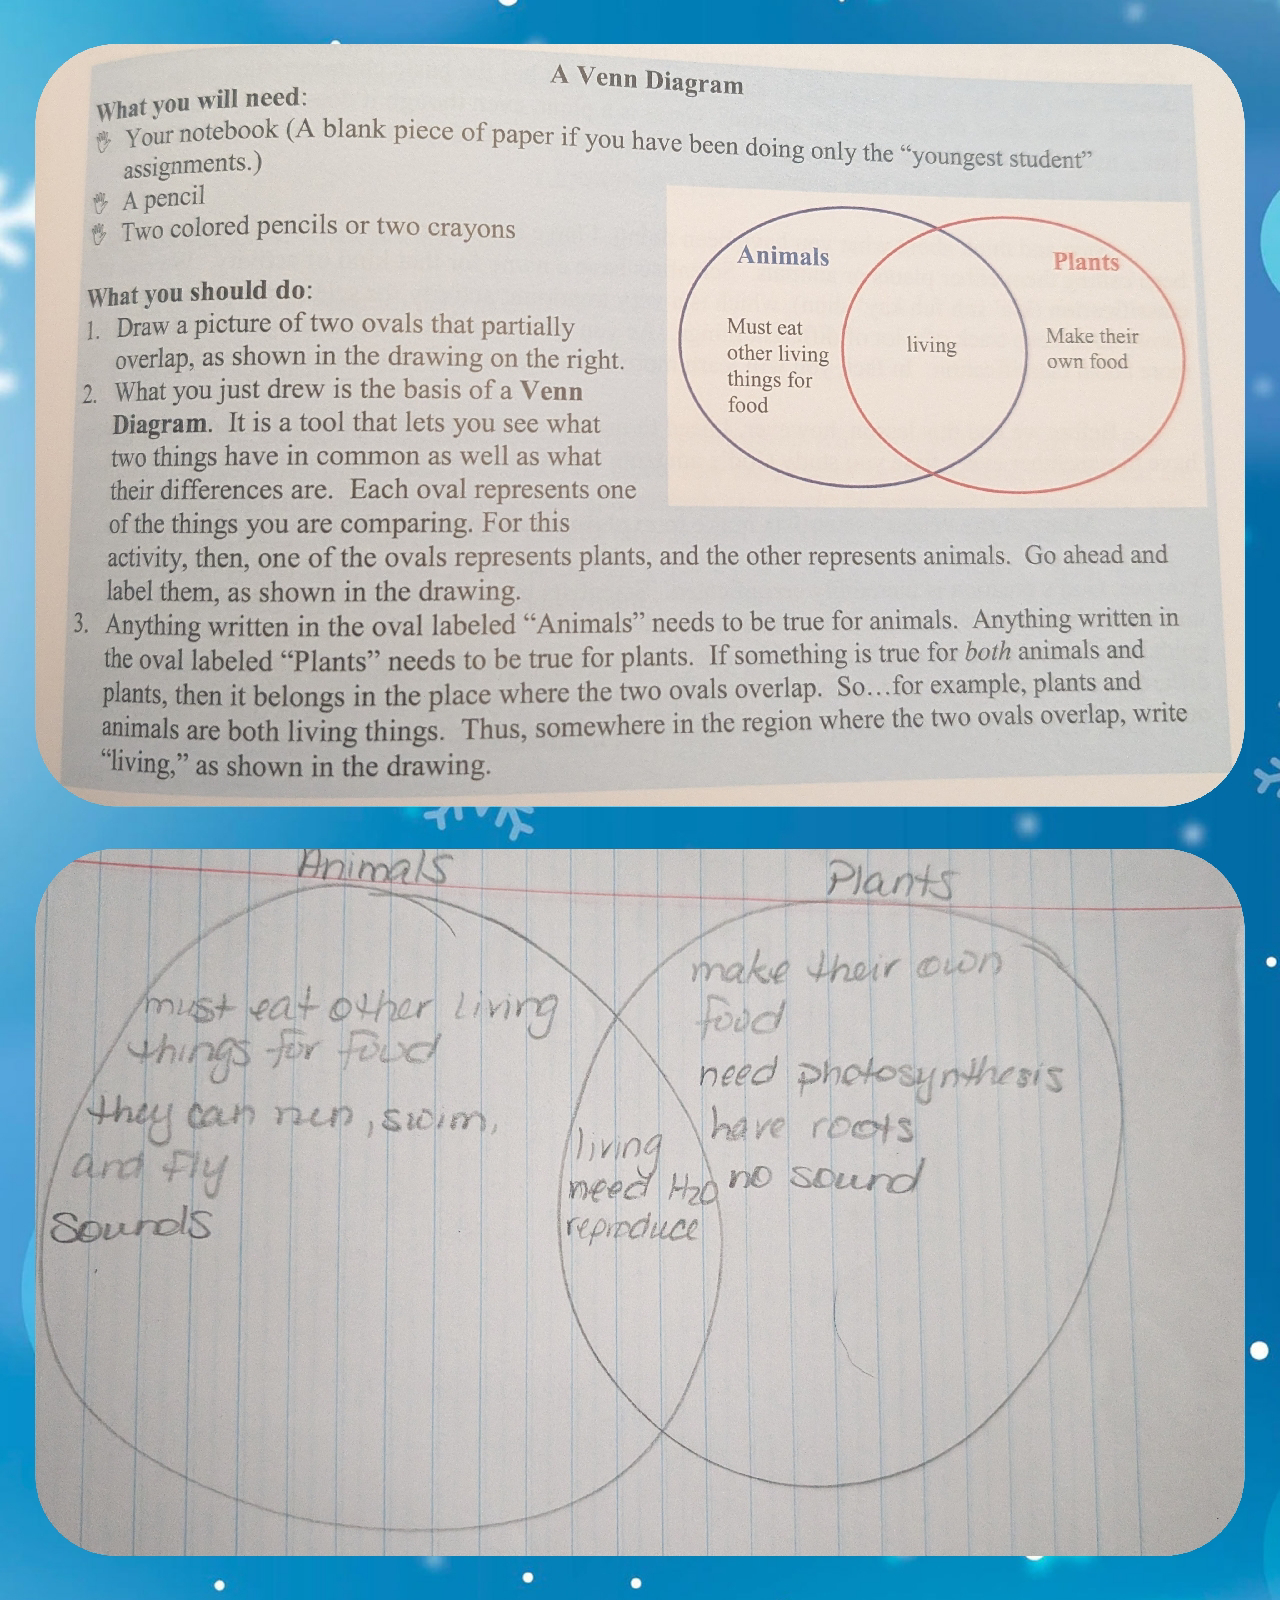 A Venn Diagram
What you will need:
Your notebook (A blank piece of paper if you have been doing only the “youngest student”
assignments.)
A pencil
Two colored pencils or two crayons
What you should do:
1. Draw a picture of two ovals that partially
overlap, as shown in the drawing on the right.
2. What you just drew is the basis of a Venn
Diagram. It is a tool that lets you see what
two things have in common as well as what
their differences are. Each oval represents one
of the things you are comparing. For this
activity, then, one of the ovals represents plants, and the other represents animals. Go ahead and
label them, as shown in the drawing.
3. Anything written in the oval labeled “Animals” needs to be true for animals. Anything written in
the oval labeled “Plants” needs to be true for plants. If something is true for both animals and
plants, then it belongs in the place where the two ovals overlap. So…for example, plants and
animals are both living things. Thus, somewhere in the region where the two ovals overlap, write
“living,” as shown in the drawing.
Animals
Must eat
other living
things for
food
living
Plants
Make their
own food
Animals
must eat other living
things for food
they can run, swim,
and fly
sounds
living
need H2O
reproduce
Plants
make their own
food
need photosynthesis
have roots
no sound